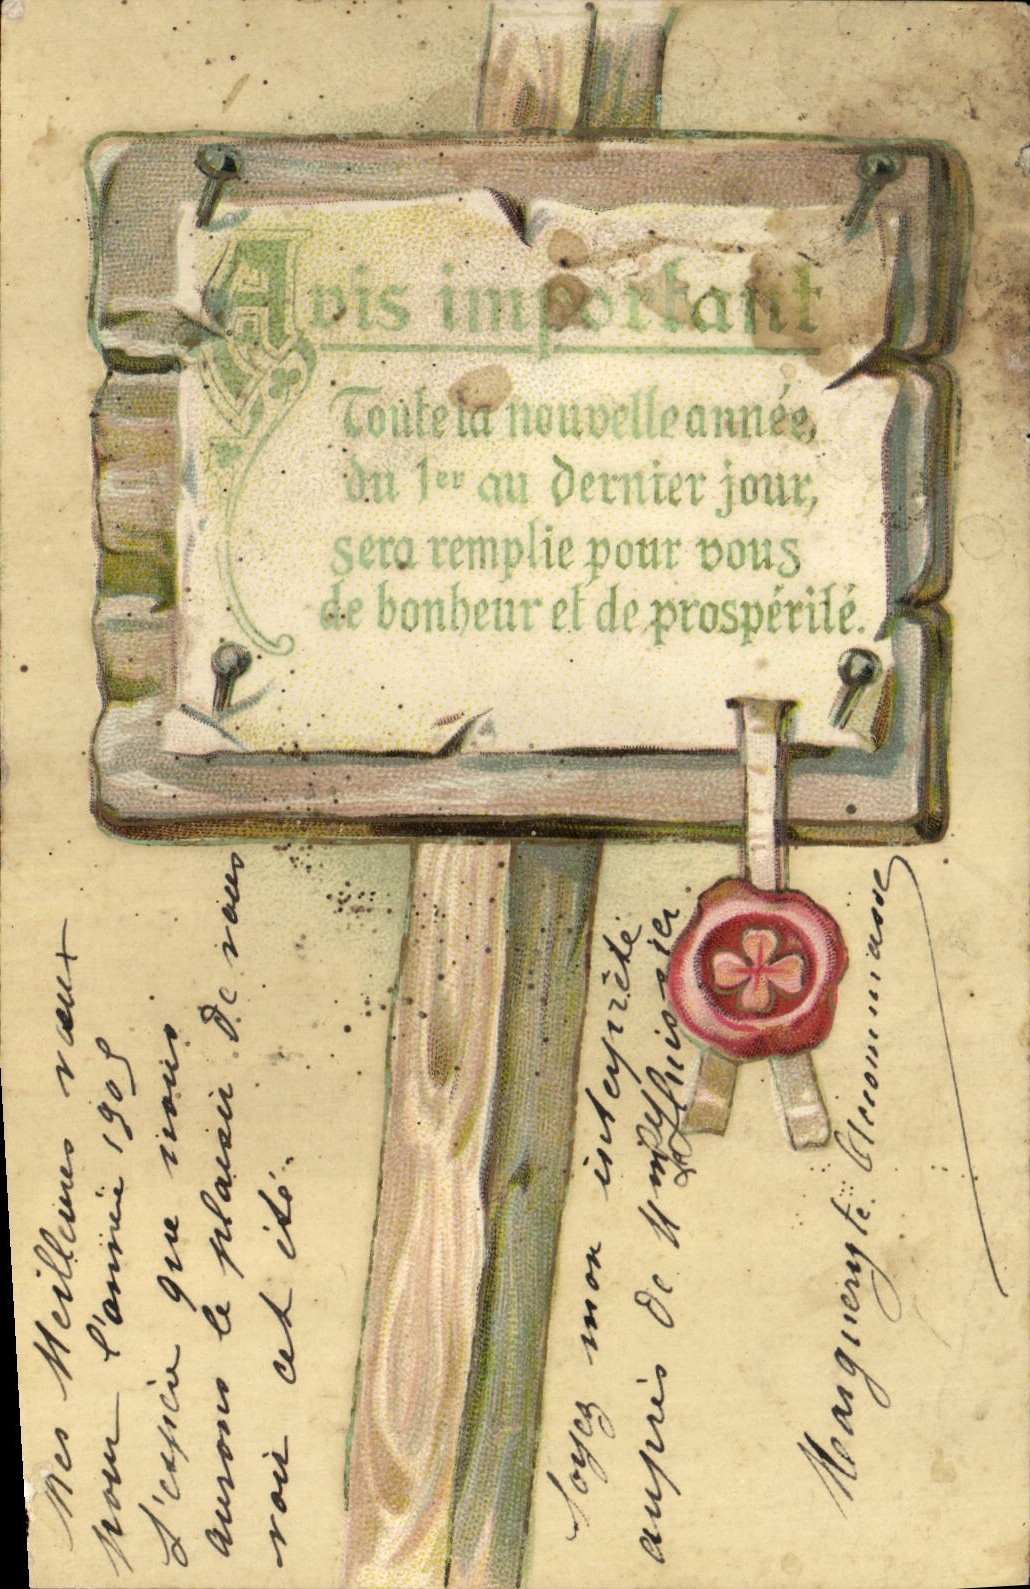 Avis important
Toute la nouvelle année,
du 1er au dernier jour,
sera remplie pour vous
de bonheur et de prospérité.
Mes Meilleurs vœux
pour l'année 1905
J'espère que nous
aurons le plaisir de vous
voir cet été.
Soyez mon interprète
auprès de M
Marguerite